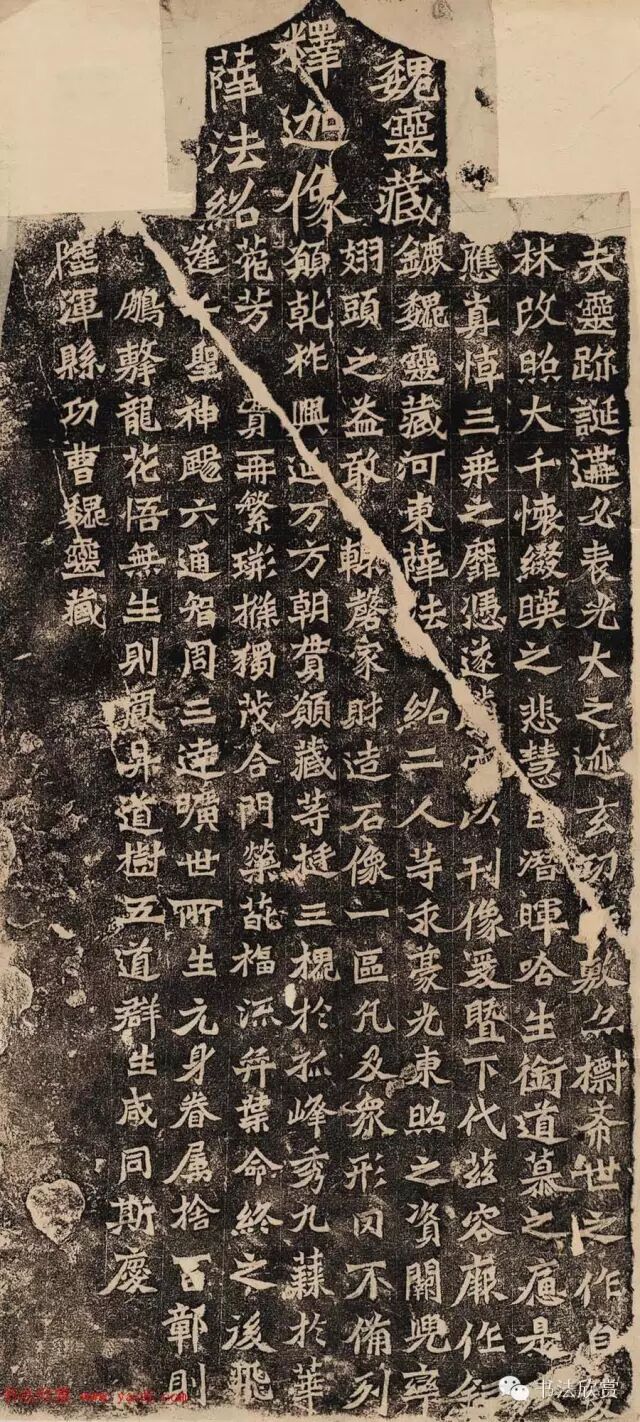 魏靈藏
釋迦像
薛法紹
夫靈跡誕遘必表光大之迹玄功敷亦標希世之作自
林改照大千懷綴暎之悲慧日潛暉唅生銜道慕之痛是
應真悼三乘之靡憑遂騰空以刊像爰暨下代茲容厥作鉅
鏕魏靈藏河東薛法紹二人等求豪光東照之資闕兜率
翅頭之益敢輒磬家財造石像一區凡及眾形罔不備列
願乾祚興延万方朝貫願藏等挺三槐於孤峰秀九蕀於華
菀芳實再繁獨茂合門榮葩福流弈葉命終之後飛
逢千聖神颺六通智周三達曠世所生元身眷屬捨百鄣則
鵬擊龍花悟無生則鳳昇道樹五道群生咸同斯慶
陸渾縣功曹魏靈藏
书法欣赏